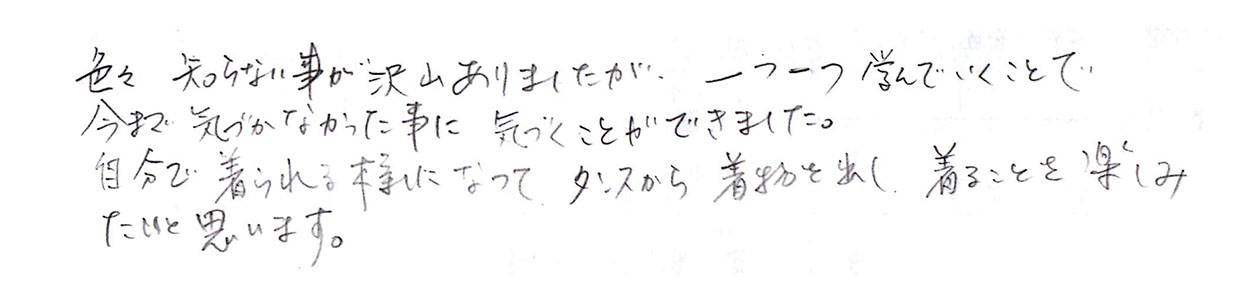 色々 知らない事が沢山ありましたが、一つ一つ学んでいくことで
今まで気づかなかった事に 気づくことができました。
自分で着られる様になって タンスから着物を出し、着ることを楽しみ
たいと思います。